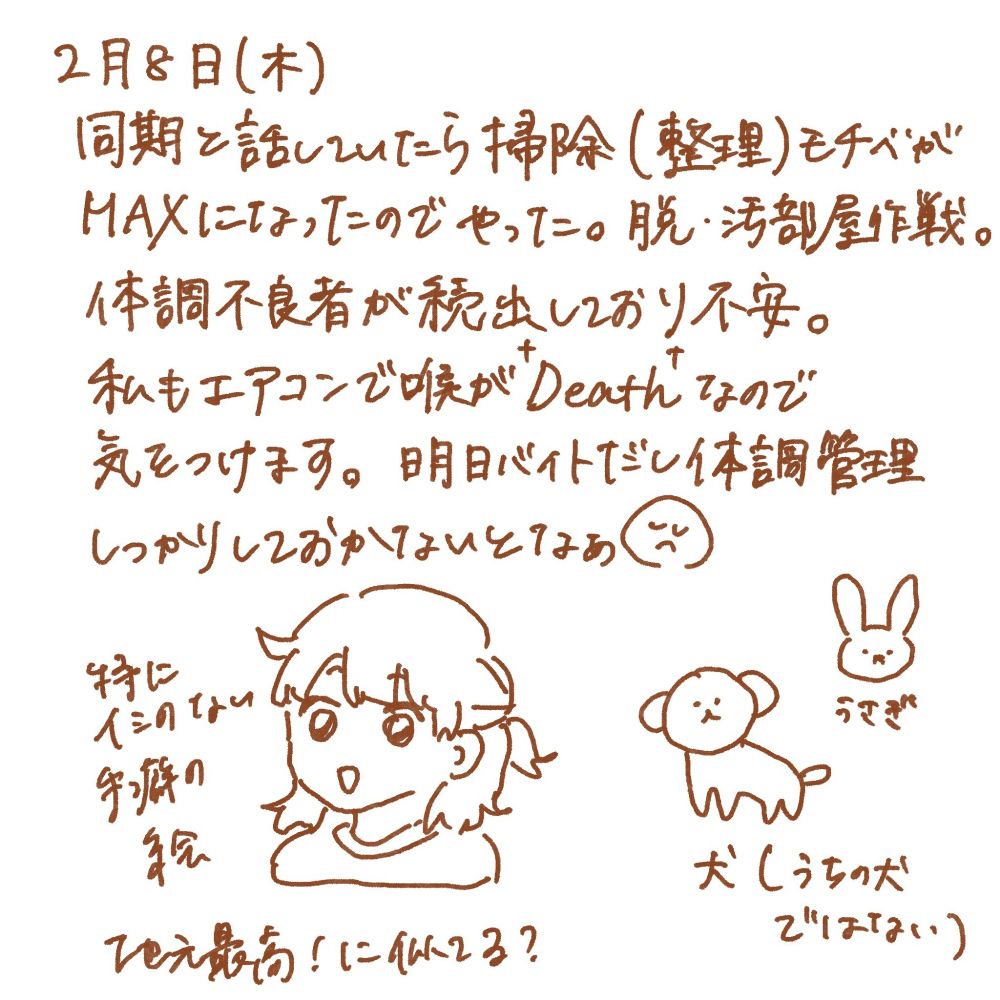 2月8日(木)
同期と話していたら掃除(整理)モチベが
MAXになったのでやった。脱・汚部屋作戦。
体調不良者が続出しており不安。
私もエアコンで喉が†Death†なので
気をつけます。明日バイトだし体調管理
しっかりしておかないとなぁ
特に
イミのない
手癖の
絵
地元最高！に似てる?
うさぎ
犬(うちの犬
ではない)